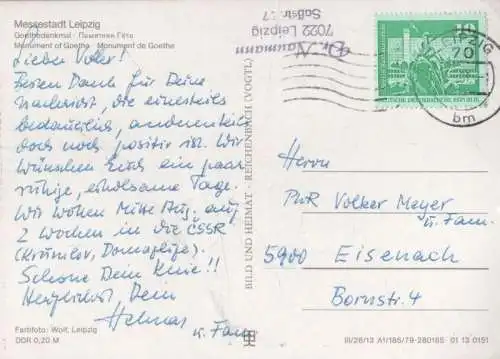 Messestadt Leipzig
Goethedenkmal · Памятник Гёте
Monument of Goethe · Monument de Goethe
Lieber Volker!
Vielen Dank für Deine
Nachricht, die einesteils
bedauerlich, andernteils
doch noch positiv ist. Wir
wünschen Euch ein paar
ruhige, erholsame Tage.
Wir wollen Mitte Aug. auf
2 Wochen in die ČSSR
(Krumlov, Domažlice).
Schone Dein Knie!!
Herzlichst Dein
Helmar
u. Fam.
Farbfoto: Wolf, Leipzig
DDR 0,20 M
BILD UND HEIMAT · REICHENBACH (VOGTL)
Dr. Naumann
7022 Leipzig
LEIPZIG
70
bm
10
DEUTSCHE DEMOKRATISCHE REPUBLIK
Herrn
PMR Volker Meyer
u. Fam.
5900 Eisenach
Bornstr. 4
III/26/13 A1/185/79-280185 01 13 0151